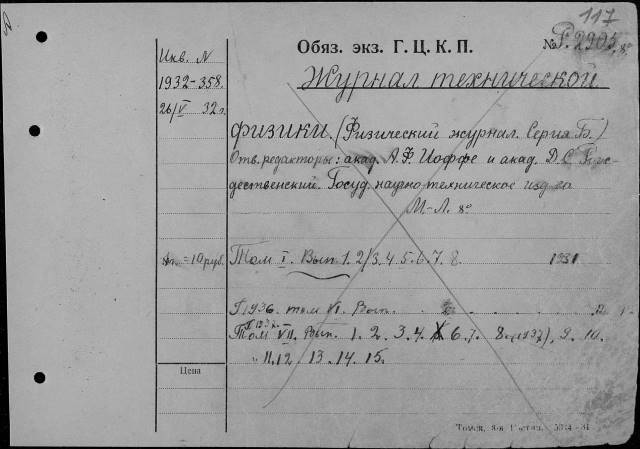 117
Обяз. экз. Г. Ц. К. П. № P.2905, 8°
Инв. N
1932-358.
26/V 32 г.
Журнал технической
физики. (Физический журнал. Серия Б.)
Отв. редакторы: акад. А. Ф. Иоффе и акад. Д. С. Рож-
дественский. Госуд. научно-техническое изд-во
М.-Л. 8°
= 10 руб.
Том I. Вып. 1. 2/3. 4. 5. 6. 7. 8. 1931
1936. том VI. Вып.
Том VII. Вып. 1. 2. 3. 4. 6. 7. 8. (1937), 9. 10.
11. 12. 13. 14. 15.
Цена
Томск,